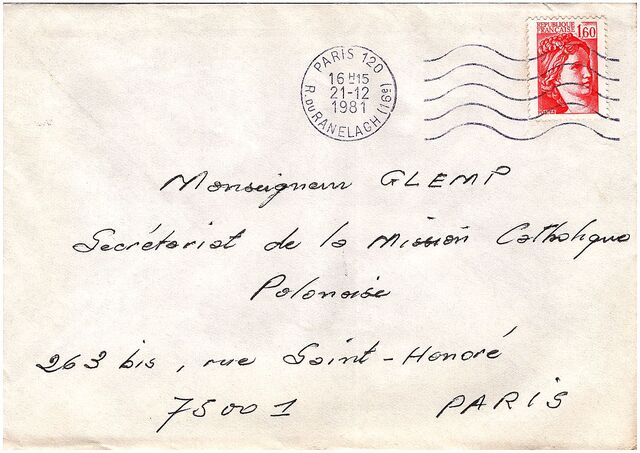 REPUBLIQUE
FRANCAISE 1,60
PARIS 120
16 H 15
21-12
1981
R. DU RANELAGH (16e)
Monseigneur GLEMP
Secrétariat de la Mission Catholique
Polonaise
263 bis, rue Saint-Honoré
75001 PARIS